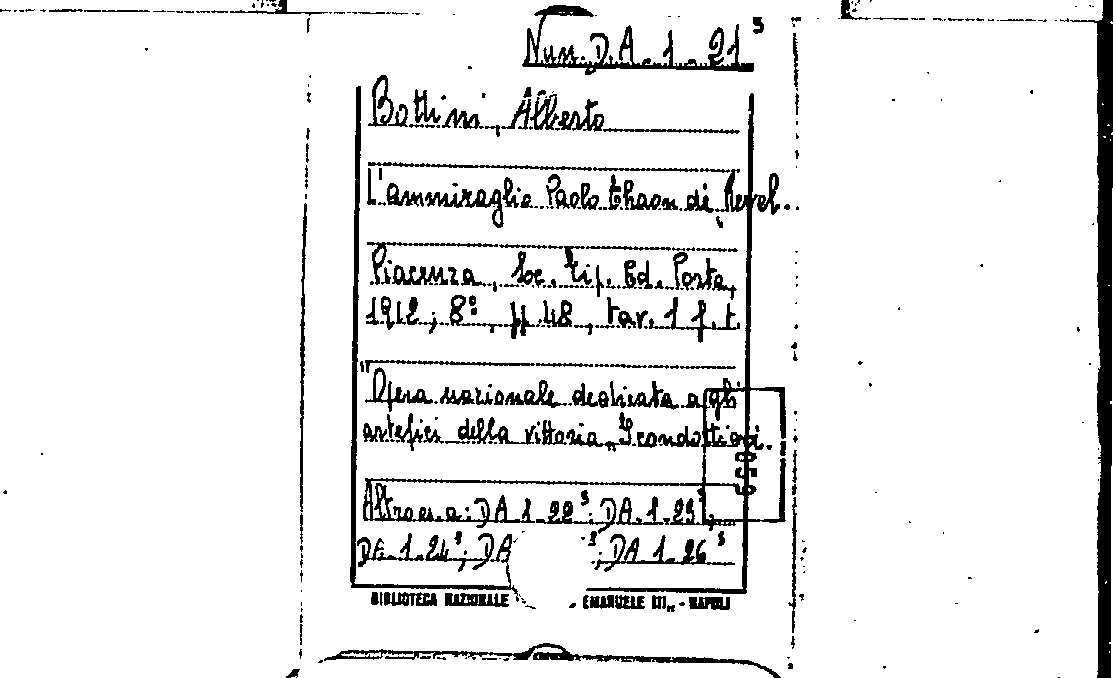 Nun. D.A. 1. 21⁵
Bottini, Alberto
L'ammiraglio Paolo Thaon di Revel.
Piacenza, Soc. Tip. Ed. Porta,
1912; 8º, pp. 48, tav. 1 f.t.
"Opera nazionale dedicata agli
artefici della vittoria„
Altro es. a: DA 1. 22⁵; DA. 1. 23⁵;
DA. 1. 24⁵; DA ⁵; DA 1. 26⁵
BIBLIOTECA NAZIONALE EMANUELE III„ - NAPOLI